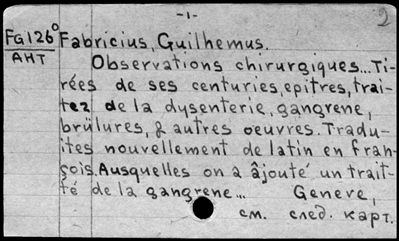 -1-
2
FG126° Fabricius, Guilhemus.
AHT
Observations chirurgiques...Ti-
rées de ses centuries, epitres, trai-
tez de la dysenterie, gangrene,
brûlures, & autres oeuvres. Tradu-
ites nouvellement de latin en fran-
çois. Ausquelles on a âjouté un trait-
té de la gangrene... Geneve,
см. след. карт.